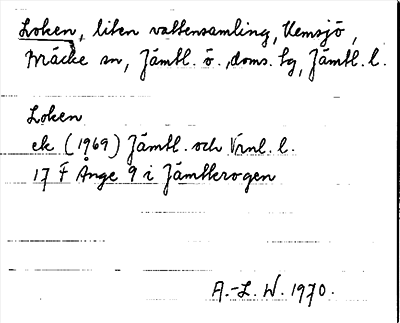 Loken, liten vattensamling, Hemsjö,
Bräcke sn, Jämtl. ö., doms. tg, Jämtl. l.
Loken
ek (1969) Jämtl. och Vrnl. l.
17 F Ånge 9 i Jämtkrogen
A.-L. W. 1970.